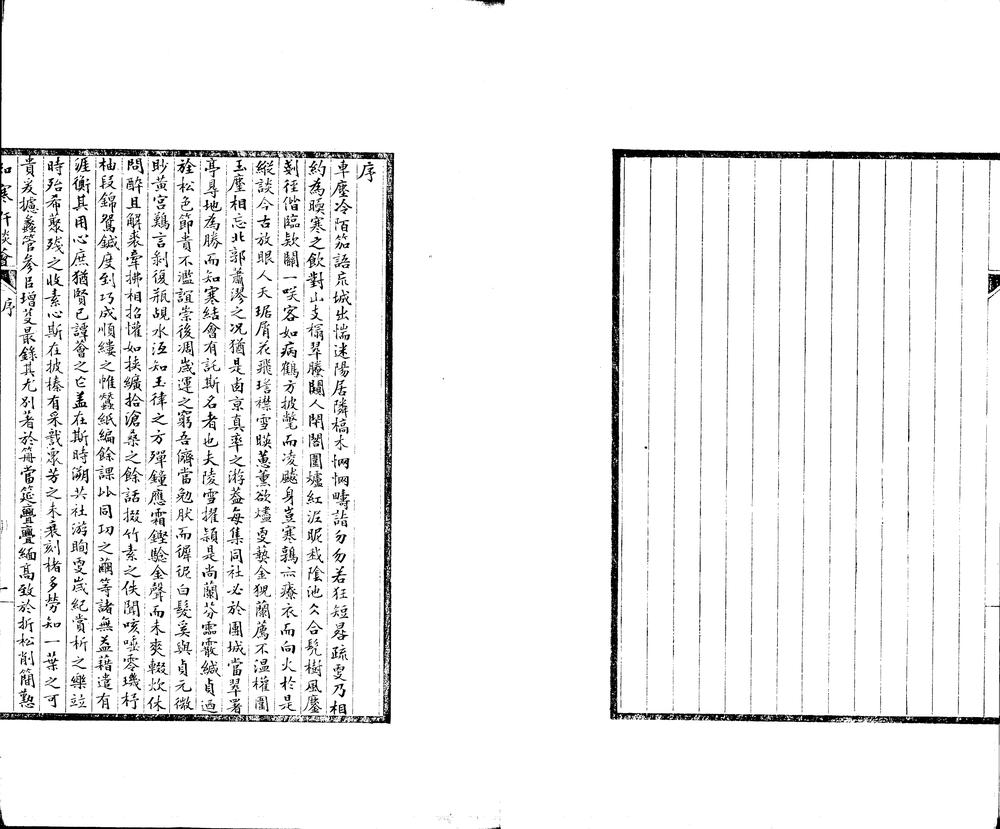 序
車塵冷陌笳語荒城出惴迷陽居隣槁木惘惘疇詣勿勿若狂短晷疏雯乃相
約為暝寒之飲對山支榻翠賸闌人閉閤圍爐紅泥昵栽陰池久合髡樹風鏖
剗徑偕臨欵關一咲客如病鶴方披氅而凌飈身豈寒鶉亦療衣而向火於是
縱談今古放眼人天琚屑花飛璔襟雪暎蕙薰欲燼雯藝金猊蘭薦不温權圍
玉麈相忘北郭蕭漻之况猶是鹵京真率之游葢每集同社必於團城當翠署
亭尋地為勝而知寒結會有託斯名者也夫陵雪擢頴是尚蘭芬霑霰緘貞迺
於松色節貴不濫誼崇後凋歲運之窮吾儕當勉肰而穉㹸白髮奚與貞元微
眇黄宮鷄言剝復瓶覘水沍知玉律之方殫鐘應霜鏗騐金聲而未爽輟炊休
問醉且解裘牽拂相招懽如挟纊拾滄桑之餘話掇竹素之佚聞咳唾零璣杼
柚段錦鴛鍼度到巧成順縷之帷蠶紙編餘課此同功之繭等諸無益藉遣有
涯衡其用心庶猶賢已譚薈之它葢在斯時溯共社游晌雯歲紀賞析之樂竝
時殆希藂殘之收素心斯在披榛有采戠衆芳之未衰刻楮多勞知一葉之可
貴爰攄蠡管參臣增芟最錄其尤别著於篇當筵亹亹緬髙致於折松削簡懃
知寒軒談薈
序
一